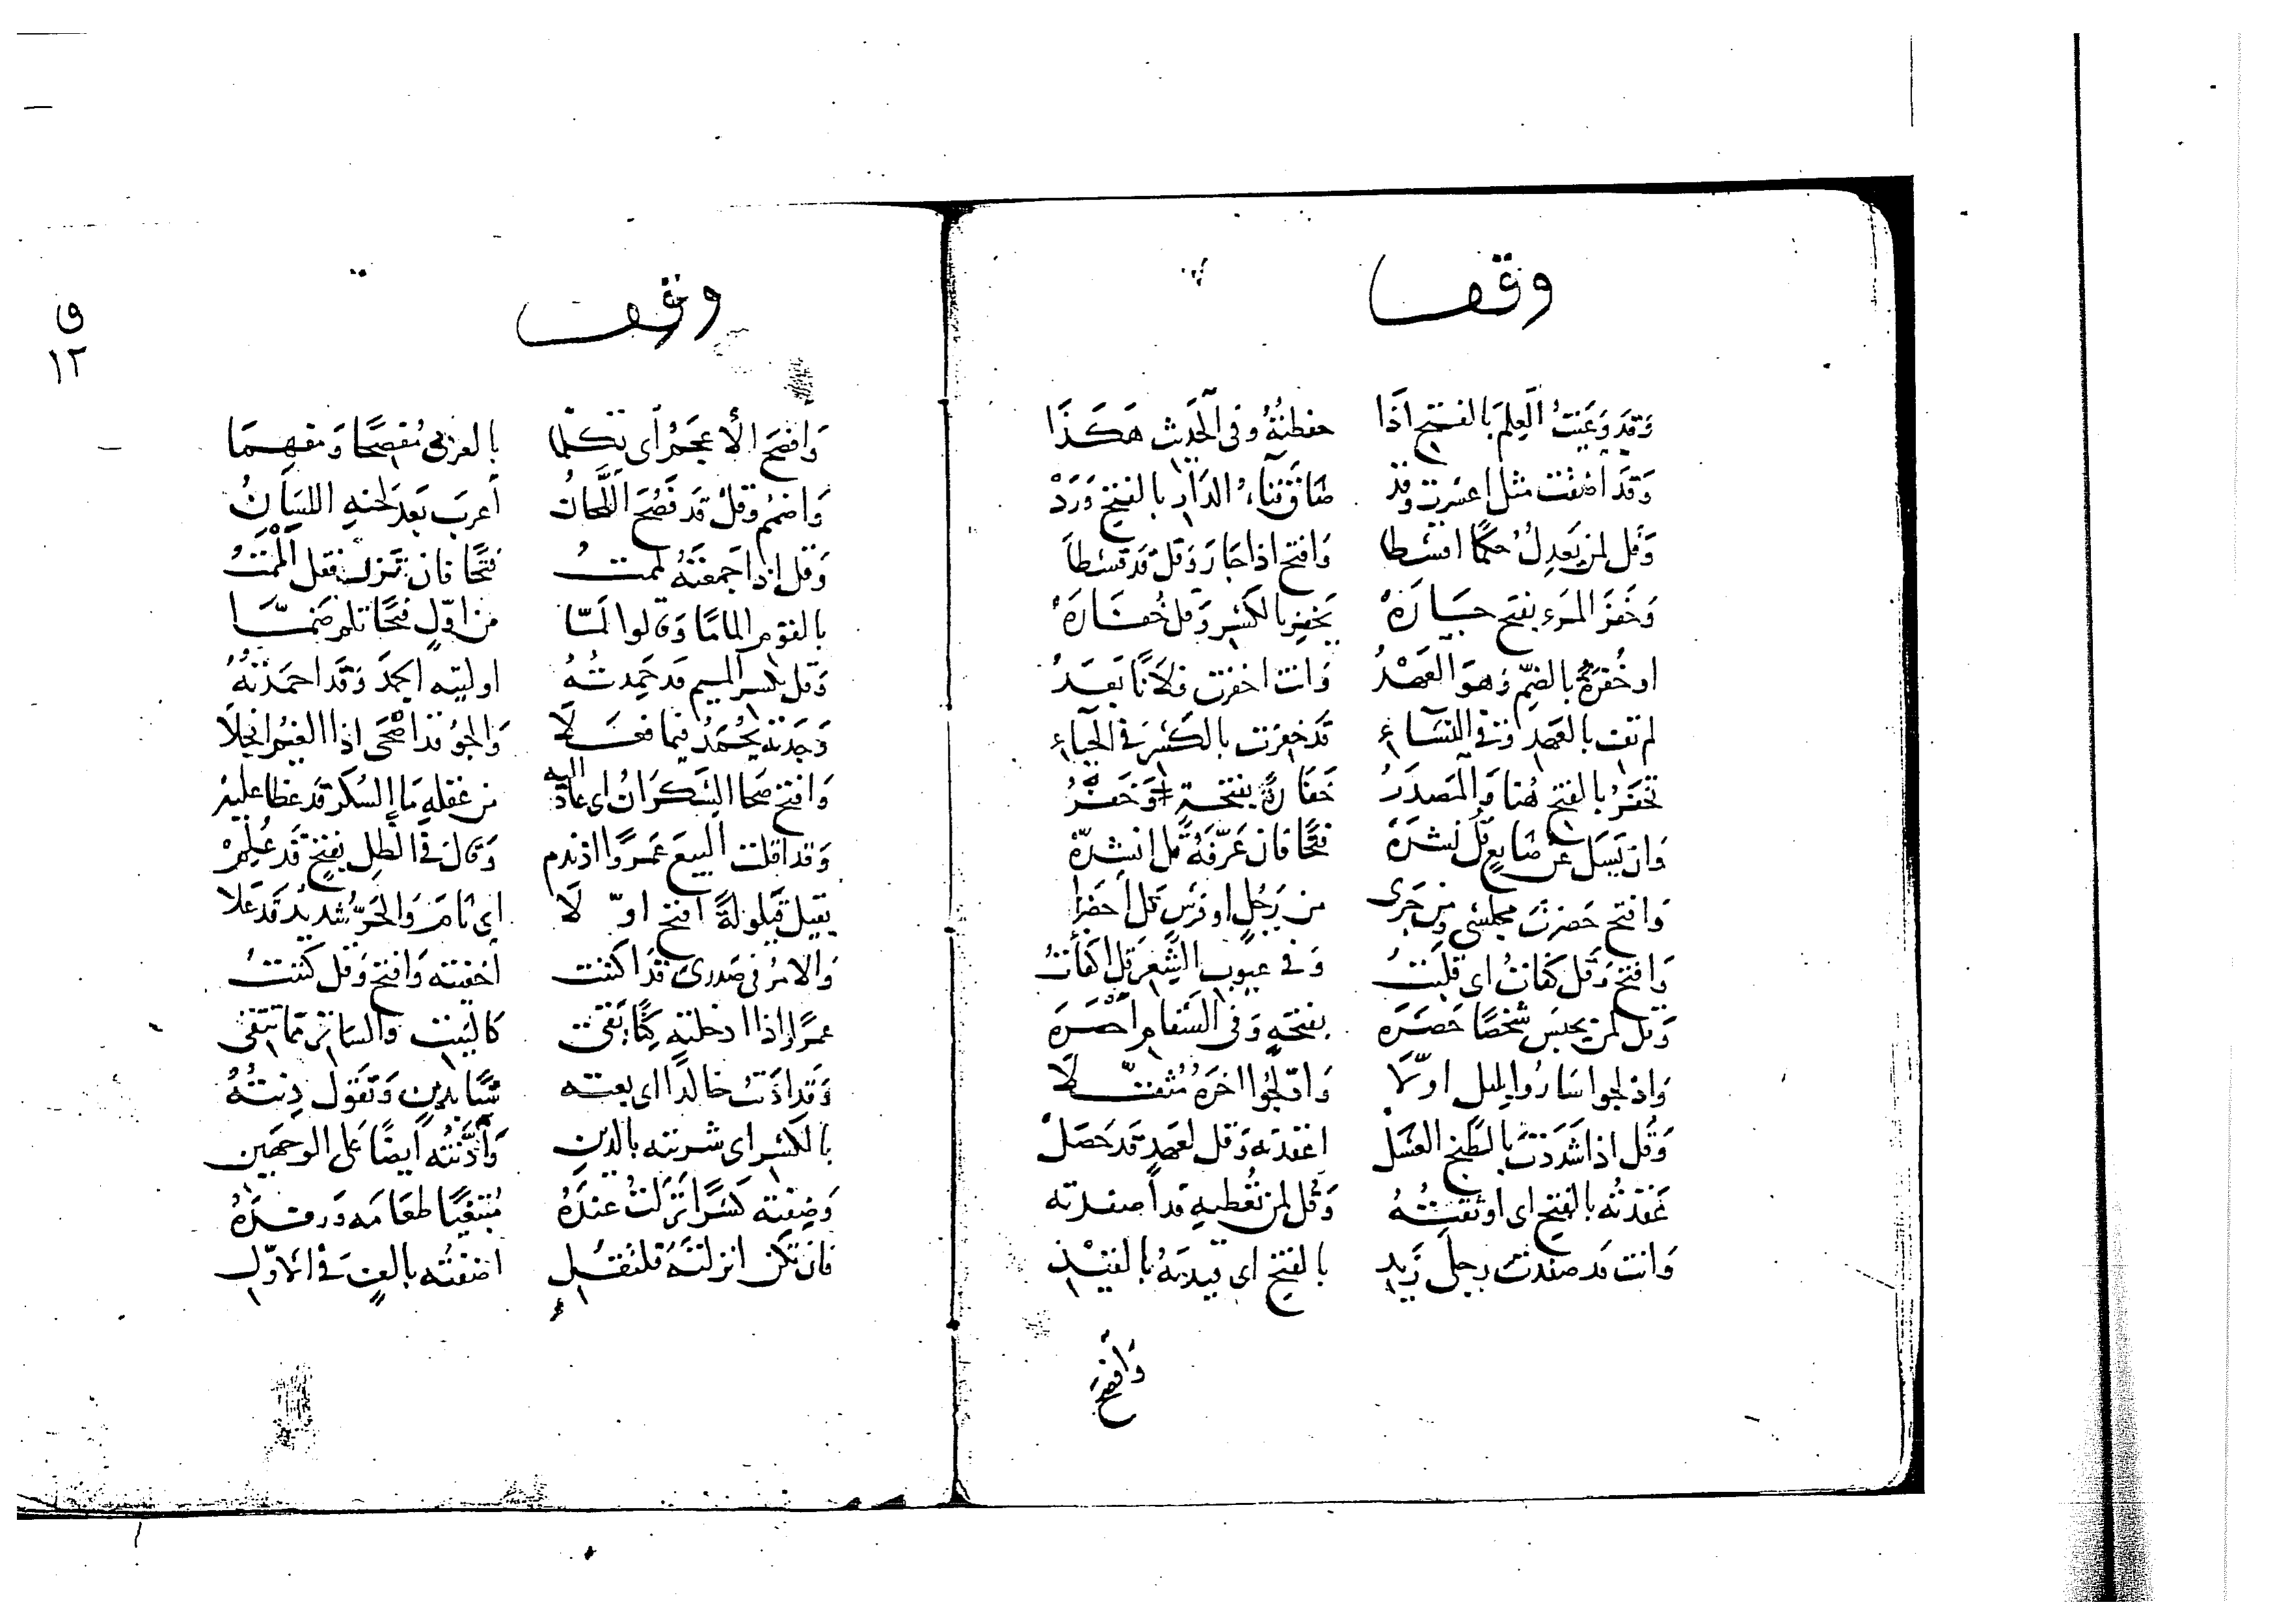 وقف
وَقَد وَعَيتُ العِلمَ بالفتح اذَا حفظتُهُ وفى الحَديث هَكَذَا
وَقَد اضقت مثل اعسَرت وقد ضاقَ فناءُ الدار بالفتح وَرَدْ
وَقُل لمن يَعدِلُ حكمًا اقسَطا وَافتح اذا جَارَ وَقل قَد قسَطَا
وَخَفَرَ المَرء بفتح جَارَهْ يَخفِر بالكَسر وَقل خُفَارَهْ
او خُفرَةٌ بالضّم وَهوَ العَهْدُ وَانت اخفرت فلَانًا بَعَدُ
لم تف بالعَهد وَفى النسَاءِ قَد خفِرَت بالكَسر فى الحَياءِ
تخفَرُ بالفتح هُنا وَالمَصدَرُ خَفَارَةٌ بفتحَةٍ وَخَفَرُ
وَان يَسَل عَن ضايعٍ قُل نشدَهْ فتحًا فان عَرّفَهُ قل انشدَهْ
وَافتح حَضرتَ مجلسى وَمن جَرى من رَجُلٍ او فرَسٍ قل احضَرا
وَافتح وَقل كفاتُ اى قلَبتُ وَفى عيوب الشعر قل اكفاتُ
وَقل لمن يحبسَ شخصًا حَصَرَهْ بفتحَهٍ وَفى السَقام احصَرَهْ
وَادلجوا سَارُوا بليل اوّلَا وَادّلجُوا اخرَهُ مُثقّلَا
وَقُل اذا شَدَدْتَ بالطَبخ العَسَلْ اعقدته وَقل لعَهدٍ قَد حَصَلْ
عَقَدتُه بالفتح اى اوثقتُهُ وَقُل لمن تُعطيهِ قد اصفدته
وَانت قد صفدت رجلَ زَيد بالفتح اى قيدتهُ بالقيْدِ
وَافصَح
وقف
ق
١٢
وَافصَحَ الأعجَمُ اى تكلّما بالعَربى مُفصِحًا وَمفهِمَا
وَاضمُم وَقُل قد فَصُحَ اللَّحّانُ أعرَبَ بَعدَ لحنهِ اللسَانُ
وَقل اذا جَمعتَهُ لممتُ فتحًا فان تنزل فقل الْمَمْتُ
بالقوم المامًا وَقالوا لمّا من اوّلٍ فتحًا تلُم ضمّا
وَقل بكسر الميم قد حَمِدتُهُ اوليته الحَمدَ وَقَد احمَدْتُهُ
وَجَدته يُحمَدُ فيما فعَلَا وَالجوّ قد اضْحَى اذا الغيمُ انجلَا
وَافتح صَحا السَكرَانُ اى عادَ اليه من عَقلهِ مَا السُكر قد غطا عليه
وَقد اقلت البيع عَمرًوا اذ ندم وَقال فى الظل بفتح قَد عُلِمْ
يقيل قَيلولةً افتح اوّلَا اى نامَ وَالحَرّ شديد قَد عَلا
وَالامرُ فى صَدرى قَد اكننت اخفيته وَافتح وَقل كننتُ
عمرًا اذا ادخلته كنًّا يَقى كالبَيت وَالساتر مما تتقى
وَقد ادَنتُ خالدًا اى بعته شيًا بدينٍ وَتَقول دِنتُهُ
بالكَسر اى شريته بالدين وَادَّنتُه ايضًا عَلى الوجهَين
وَضِفته كَسرًا نَزَلتُ عندَهُ مُبتَغيًا طعَامَه وَرفدَهُ
فان تكن انزلتَهُ فلتقُلِ اضفتُه بالالفِ فى الاوّلِ